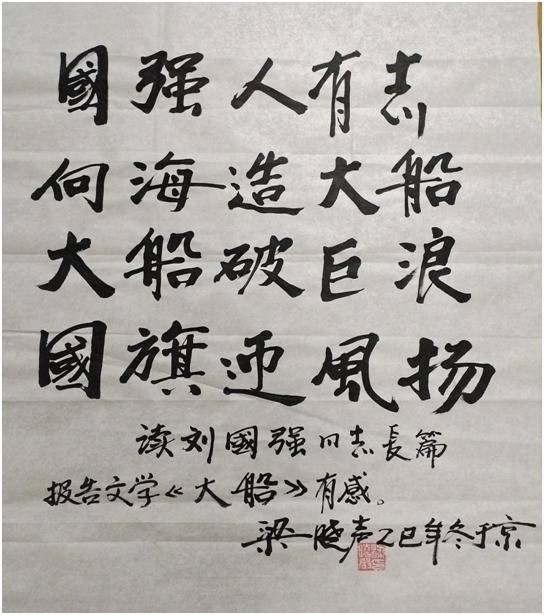 國强人有志
何海造大船
大船破巨浪
國旗迎風扬
读刘國强同志長篇
报告文学《大船》有感。
梁晓声乙巳年冬于京